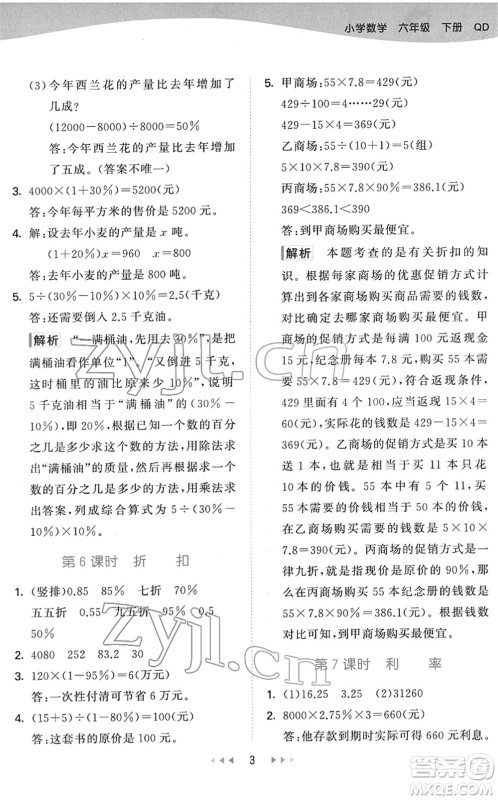 小学数学 六年级 下册 QD
(3)今年西兰花的产量比去年增加了
几成?
(12000-8000)÷8000=50%
答:今年西兰花的产量比去年增
加了五成。(答案不唯一)
3. 4000×(1+30%)=5200(元)
答:今年每平方米的售价是5200元。
4. 解:设去年小麦的产量是x吨。
(1+20%)x=960 x=800
答:去年小麦的产量是800吨。
5. 5÷(30%-10%)×10%=2.5(千克)
答:还需要倒入2.5千克油。
解析 “一满桶油,先用去30%”,是把
满桶油看作单位“1”,“又倒进5千克,
这时桶里的油比原来少10%”,说明
5千克油相当于“满桶油”的(30%-
10%),根据已知一个数的百分之几
是多少求这个数的方法,用除法求
出“满桶油”的质量,然后,再根据求
一个数的百分之几是多少的方法,
求出“满桶油”的10%,用乘法求出
答案。列成综合算式为5÷(30%-
10%)×10%。
第6课时 折 扣
1. (竖排)0.85 85% 七折 70%
五五折 0.55 九五折 95% 0.5
50%
2. 4080 252 83.2 30
3. 120×(1-95%)=6(万元)
答:一次性付清可节省6万元。
4. (15+5)÷(1-80%)=100(元)
答:这套书的原价是100元。
5. 甲商场:55×7.8=429(元)
429÷100=4……29(元)
429-15×4=369(元)
乙商场:55÷(10+1)=5(组)
5×10×7.8=390(元)
丙商场:55×7.8×90%=386.1(元)
369<386.1<390
答:到甲商场购买最便宜。
解析 本题考查的是有关折扣的知
识。根据每家商场的优惠促销方式计
算出各家商场购买商品需要的钱数,
对比确定去哪家购买最便宜。甲商
场的促销方式是每满100元返现金
15元,纪念册每本7.8元,55本的价
格是55×7.8=429(元),这个价格里
有4个100元,符合返现条件,
429里面有4个15元,429-15×4=
369(元)。实际花的钱数是429-15×
4=369(元)。乙商场的促销方式是买10本
送1本,也就是买11本只花10本
的价钱。在乙商场购买55本纪念册
的价格相当于买5个11本花了5个
10本的价钱。所以花的钱数是5×
10×7.8=390(元)。丙商场的促销方式是一
律九折,就是按原价的90%销售。
在丙商场购买55本纪念册的价格是
55×7.8×90%=386.1(元)。369<
386.1<390,所以到甲商场购买最便宜。
第7课时 利 率
1. (1)16.25 3.25 (2)31260
2. 8000×2.75%×3=660(元)
答:他存款到期时实际可得660元利息。
3
zyjl.cn
答案圈